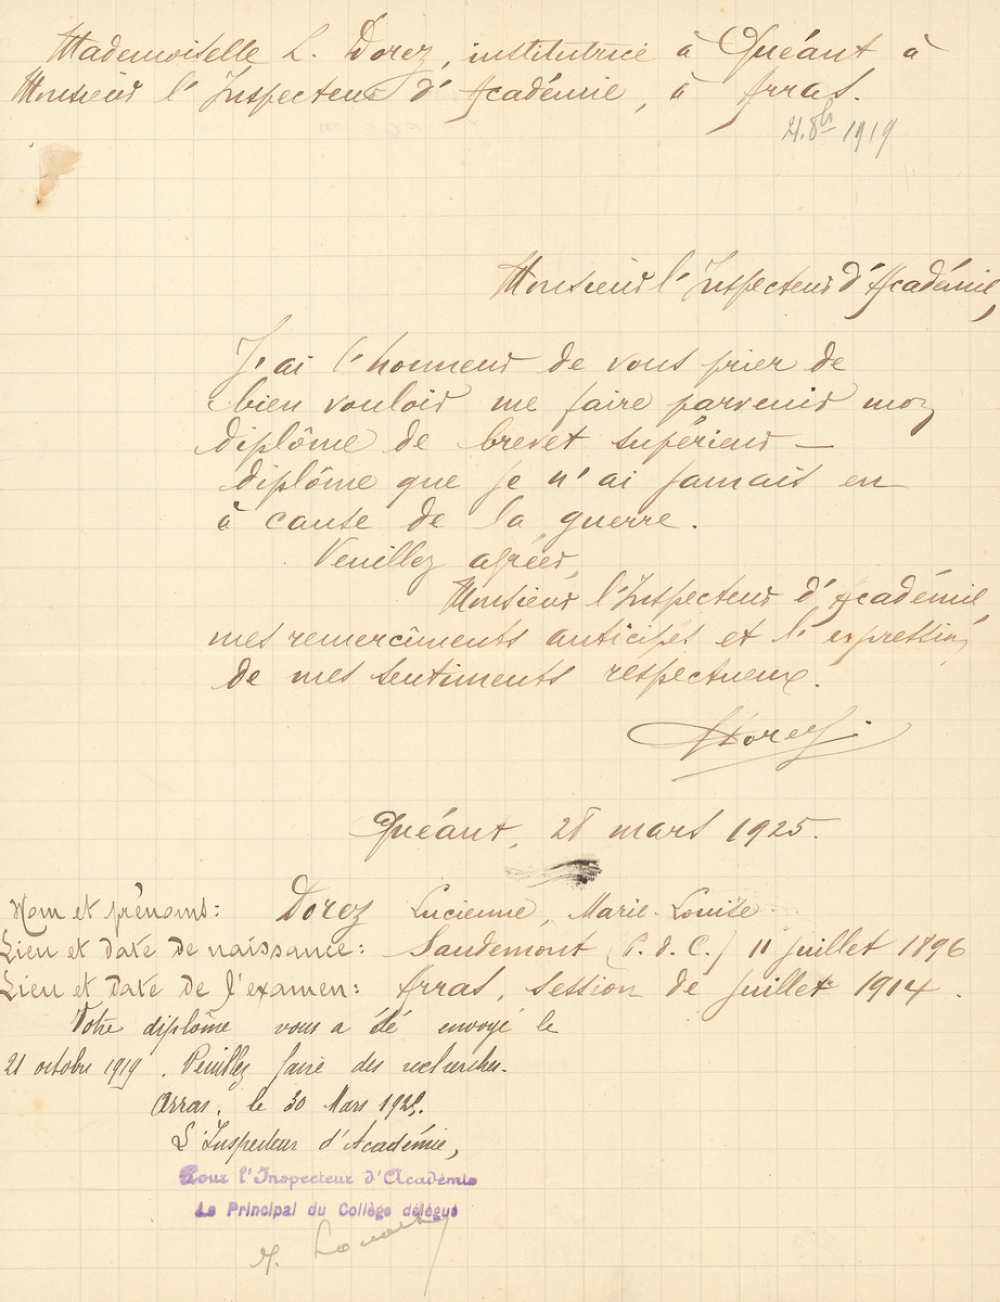 Mademoiselle L. Dorez, institutrice à Quéant à
Monsieur l'Inspecteur d'Académie, à Arras.
21. 8bre 1919
Monsieur l'Inspecteur d'Académie,
J'ai l'honneur de vous prier de
bien vouloir me faire parvenir mon
diplôme de brevet supérieur –
diplôme que je n'ai jamais eu
à cause de la guerre.
Veuillez agréer,
Monsieur l'Inspecteur d'Académie,
mes remercîments anticipés et l'expression
de mes sentiments respectueux.
LDorez
Quéant, 28 mars 1925.
Nom et prénoms: Dorez Lucienne, Marie-Louise
Lieu et date de naissance: Saudemont (P. d. C.) 11 juillet 1896
Lieu et date de l'examen: Arras, session de juillet 1914.
Votre diplôme vous a été envoyé le
21 octobre 1919. Veuillez faire des recherches.
Arras, le 30 Mars 1925.
L'Inspecteur d'Académie,
Pour l'Inspecteur d'Académie
Le Principal du Collège délégué